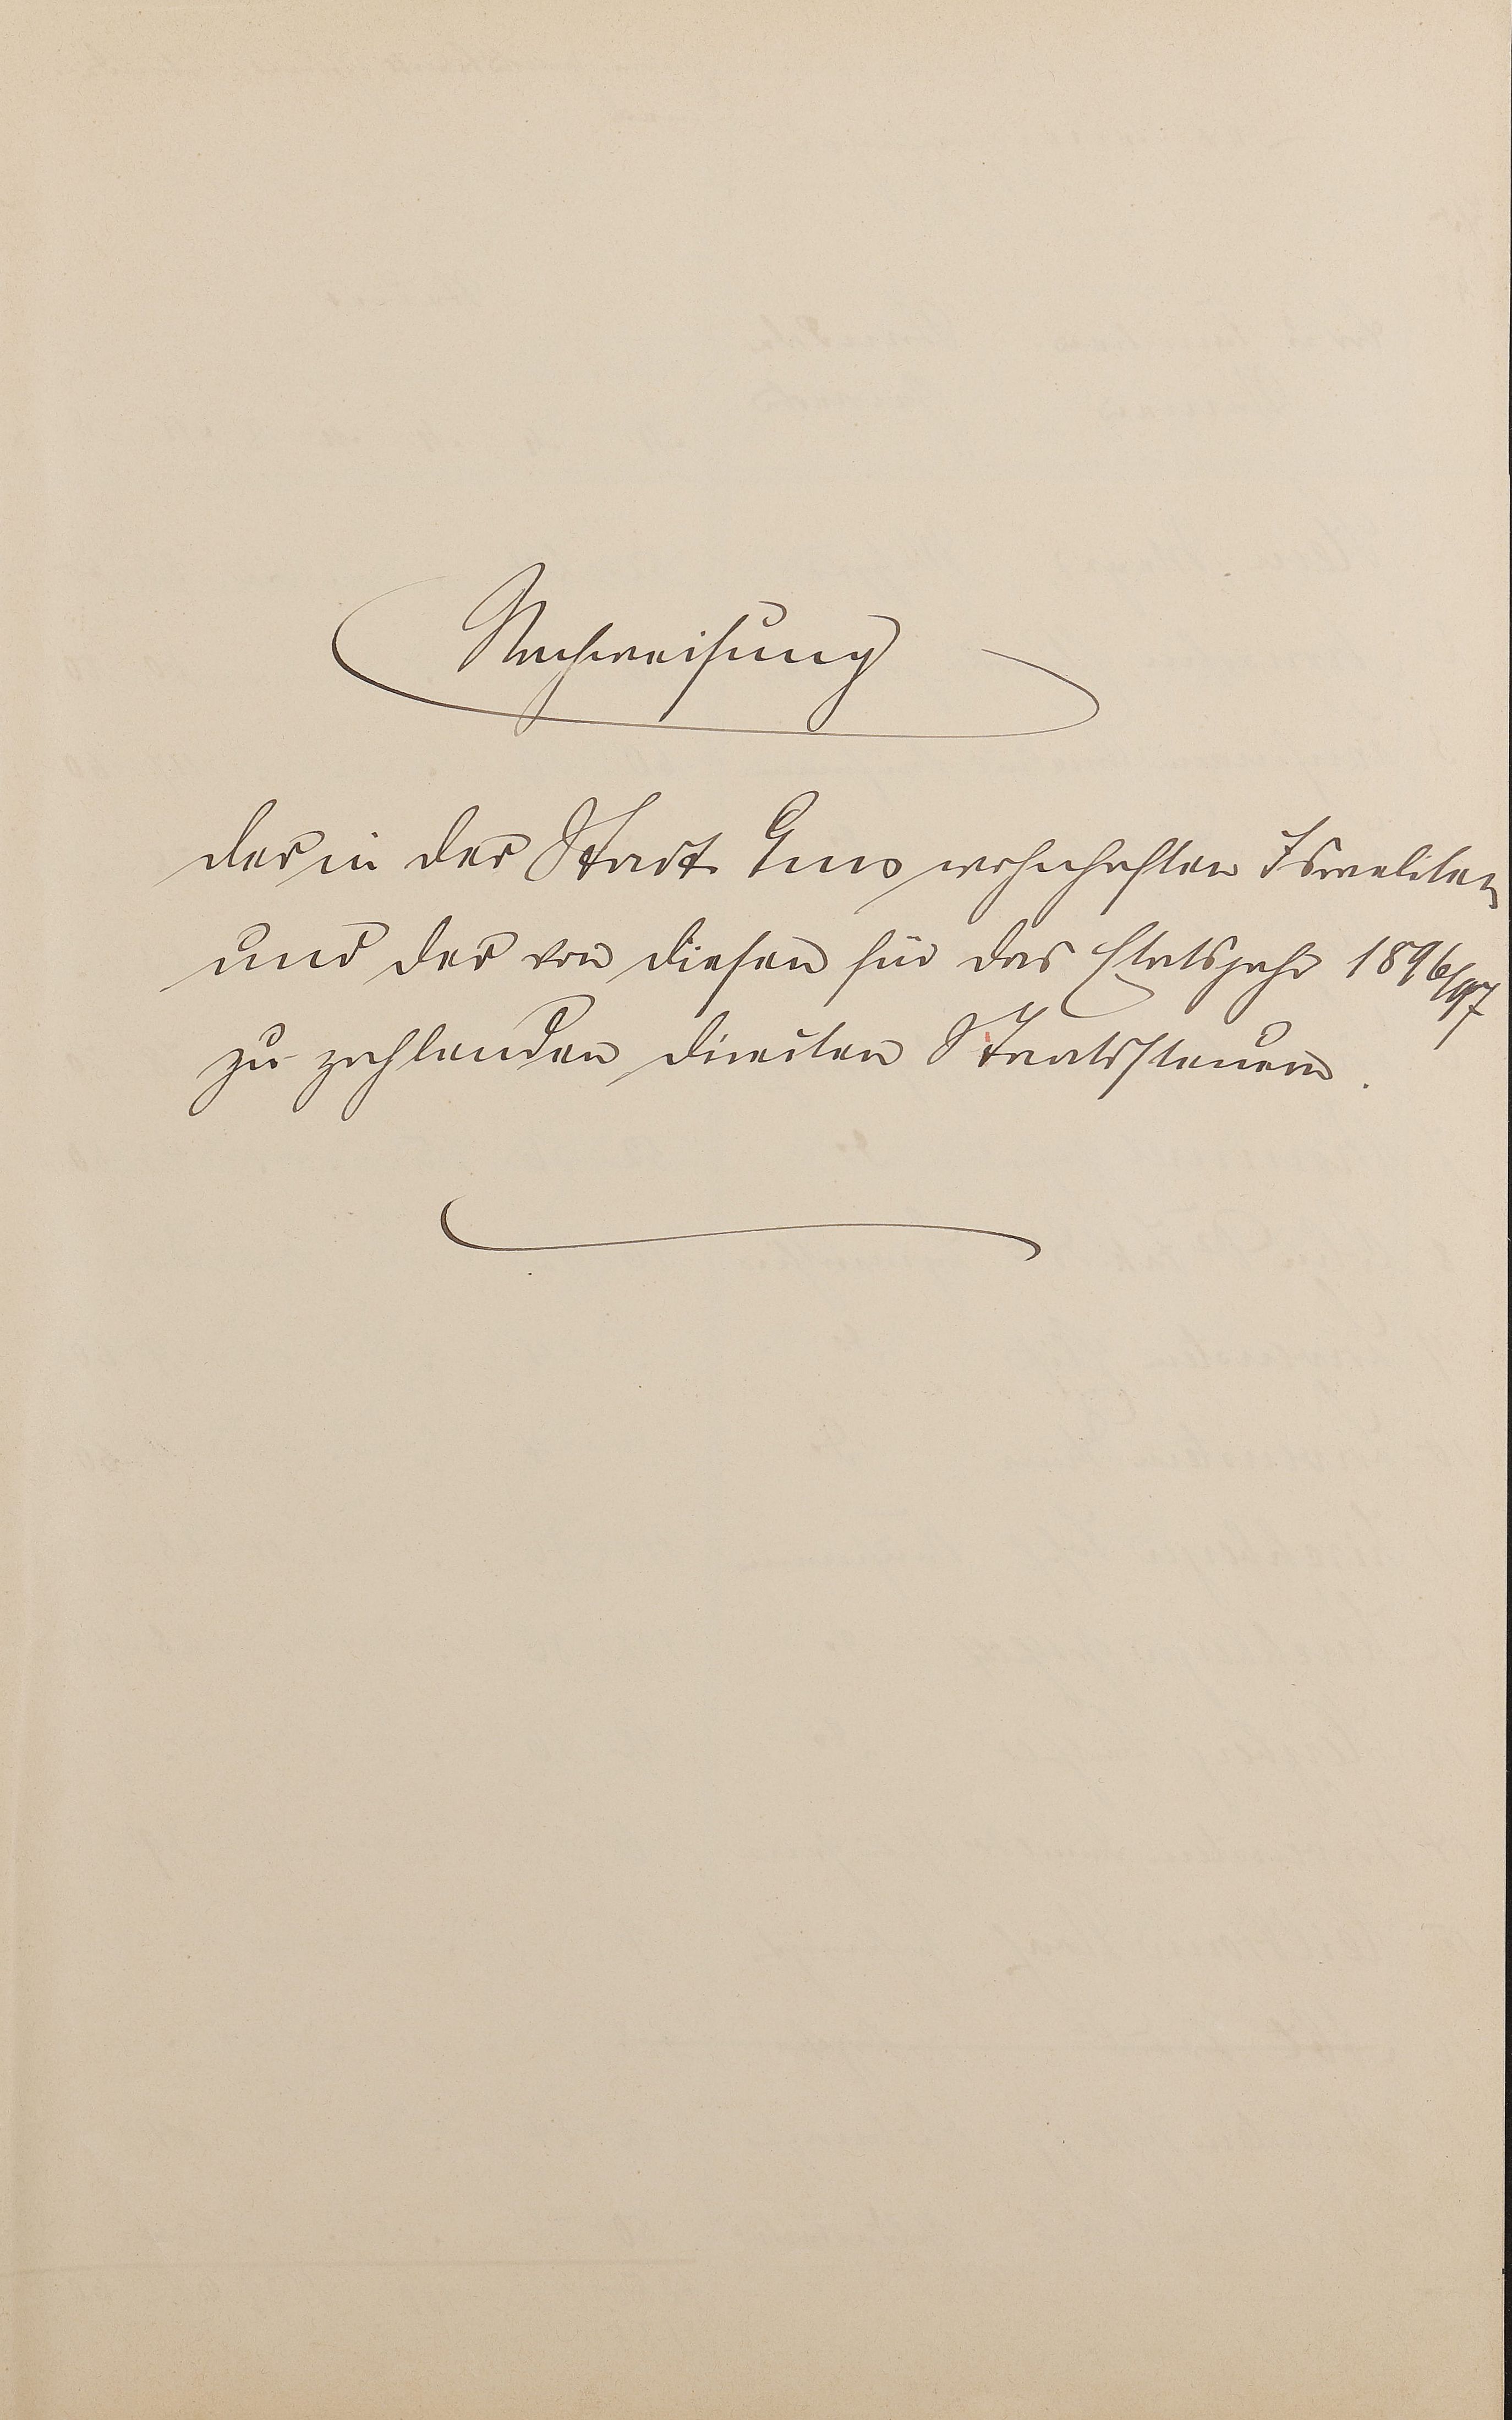 Nachweisung
der in der Stadt Ems wohnhaften Israeliten
und der von diesen für das Etatsjahr 1896/97
zu zahlenden directen Staatssteuern.